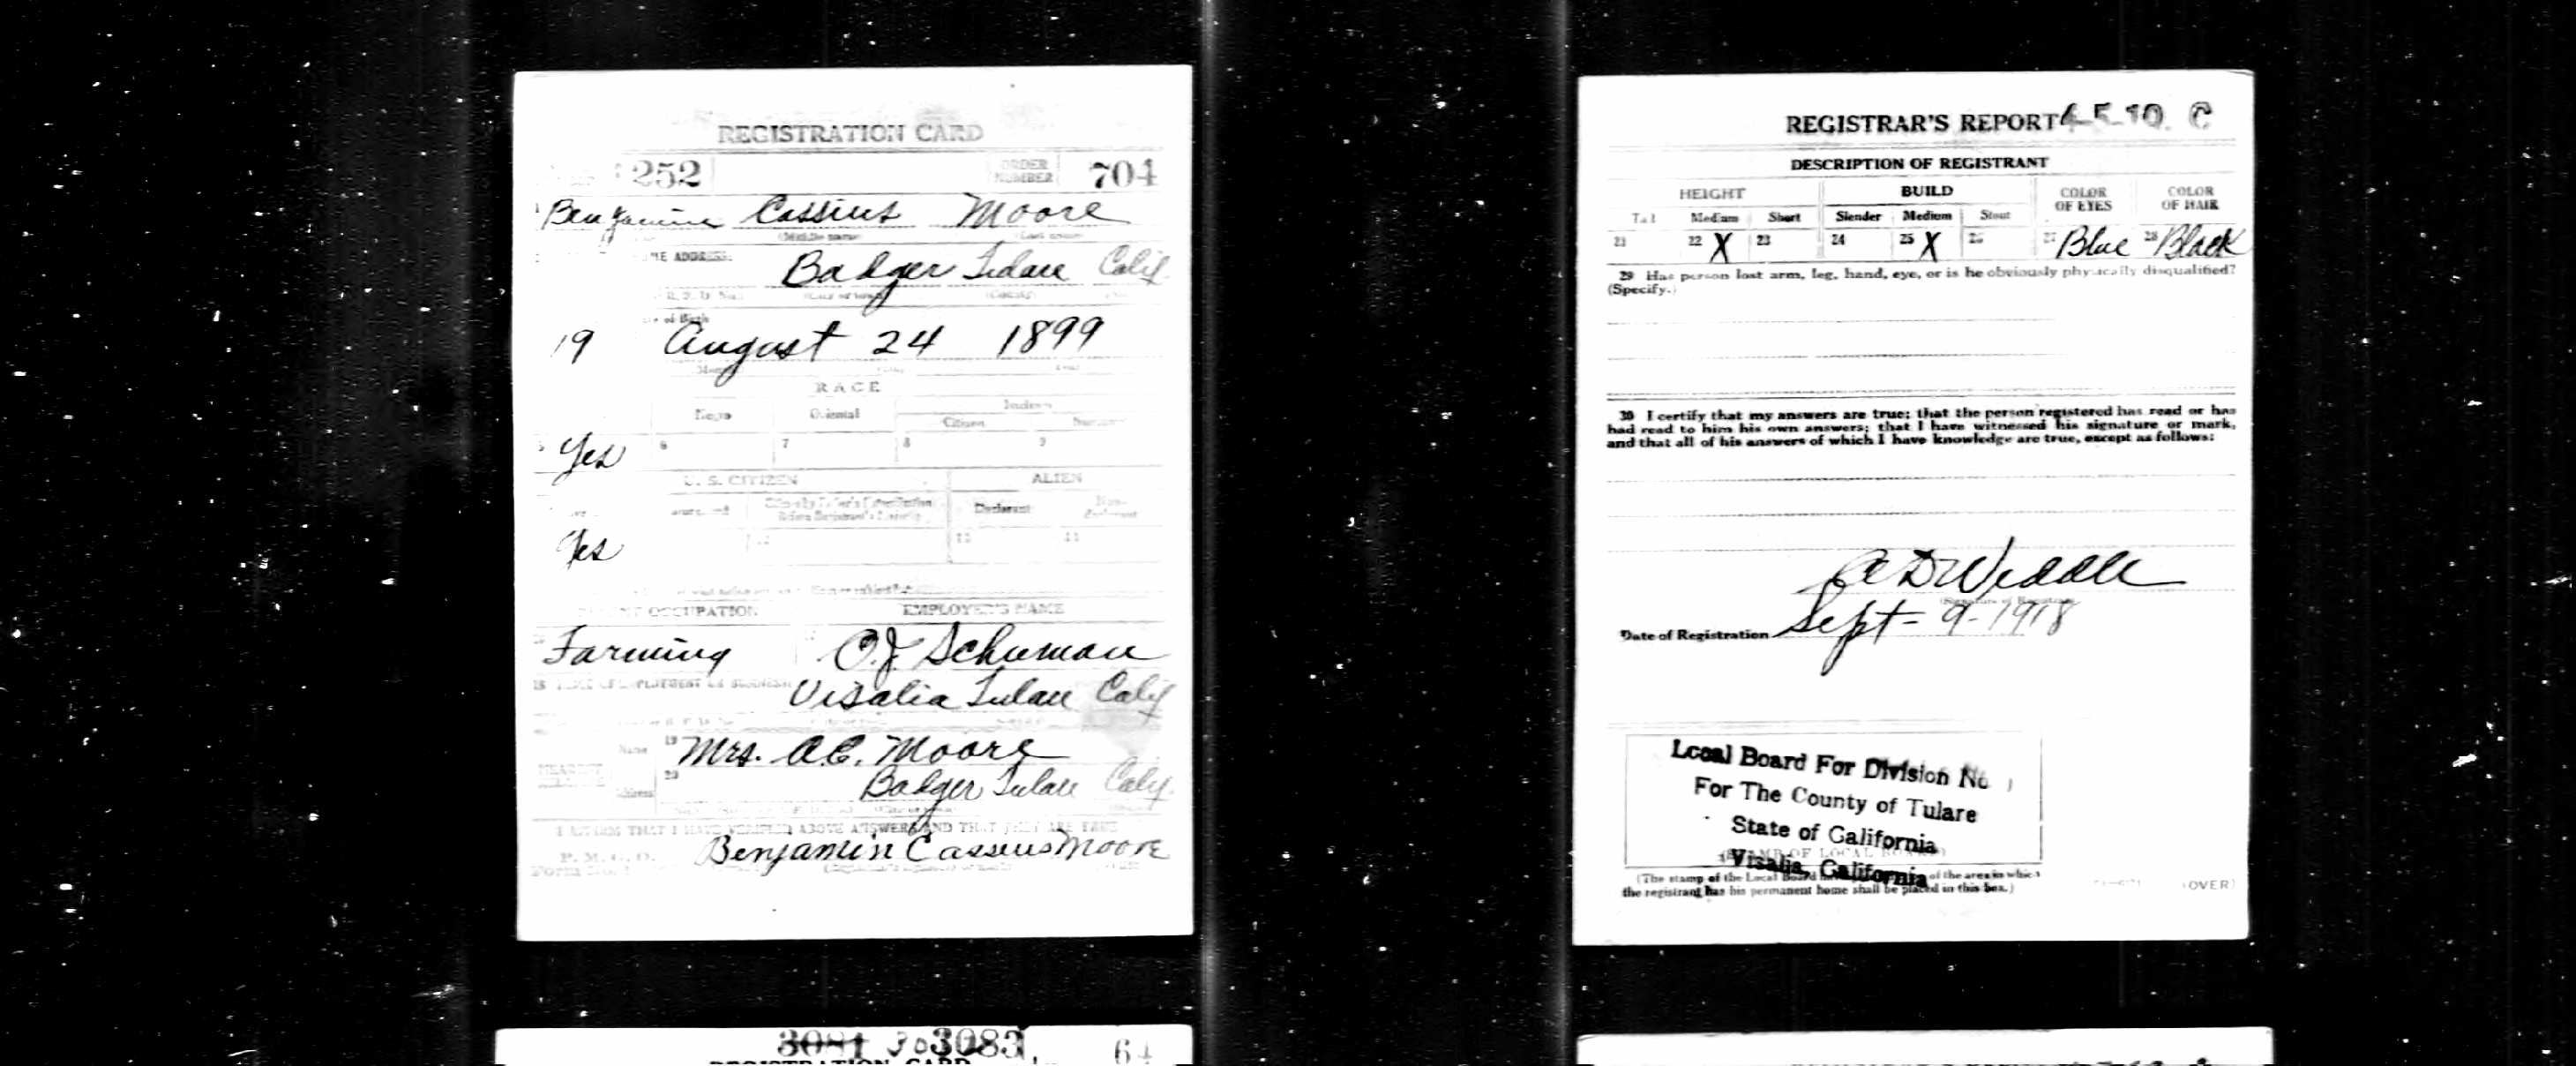 REGISTRATION CARD
252 ORDER NUMBER 704
Benjamine Cassius Moore
(Middle name) (Last name)
ME ADDRESS:
Badger Tulare Calif.
of Birth
19 August 24 1899
RACE
Negro Oriental Indian
Citizen
Yes 6 7 8 9
U. S. CITIZEN ALIEN
Declarant
Yes
OCCUPATION EMPLOYER'S NAME
Farming O.J. Schuman
Visalia Tulare Calif
Name 19 Mrs. A.C. Moore
20 Badger Tulare Calif.
Address
I AFFIRM THAT I HAVE VERIFIED ABOVE ANSWERS AND THAT THEY ARE TRUE
P. M. G. O.
Benjamin Cassius Moore
REGISTRAR'S REPORT 4-5-10. C
DESCRIPTION OF REGISTRANT
HEIGHT BUILD COLOR OF EYES COLOR OF HAIR
Tall Medium Short Slender Medium Stout
21 22 X 23 24 25 X 26 27 Blue 28 Black
29 Has person lost arm, leg, hand, eye, or is he obviously physically disqualified?
(Specify.)
30 I certify that my answers are true; that the person registered has read or has
had read to him his own answers; that I have witnessed his signature or mark,
and that all of his answers of which I have knowledge are true, except as follows:
A D Weddle
(Signature of Registrar)
Date of Registration Sept - 9 - 1918
Local Board For Division No 1
For The County of Tulare
State of California
Visalia, California
(STAMP OF LOCAL BOARD)
(The stamp of the Local Board of the area in which
the registrant has his permanent home shall be placed in this box.)
(OVER)
3081 3083 64
REGISTRATION CARD